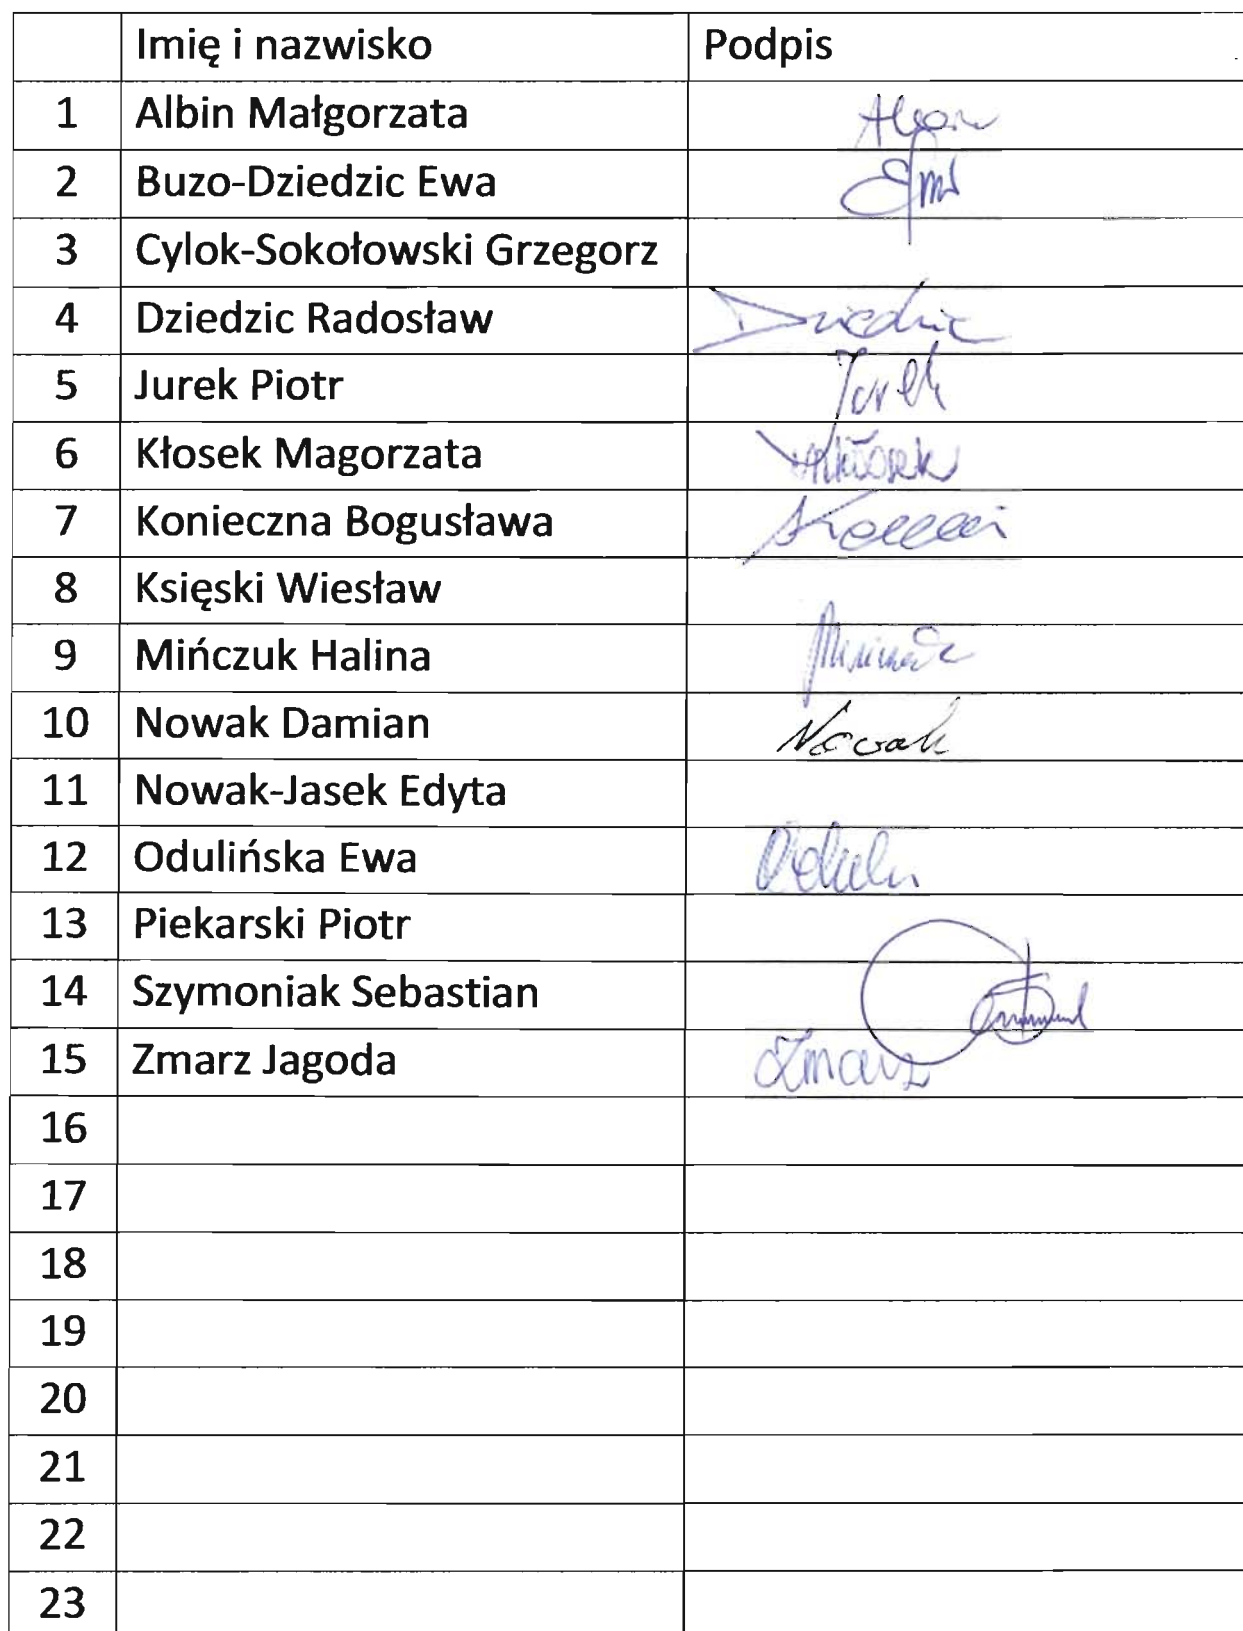 Imię i nazwisko Podpis
1 Albin Małgorzata
2 Buzo-Dziedzic Ewa
3 Cylok-Sokołowski Grzegorz
4 Dziedzic Radosław Dziedzic
5 Jurek Piotr Jurek
6 Kłosek Magorzata Kłosek
7 Konieczna Bogusława
8 Księski Wiesław
9 Mińczuk Halina
10 Nowak Damian Nowak
11 Nowak-Jasek Edyta
12 Odulińska Ewa
13 Piekarski Piotr
14 Szymoniak Sebastian
15 Zmarz Jagoda Zmarz
16
17
18
19
20
21
22
23